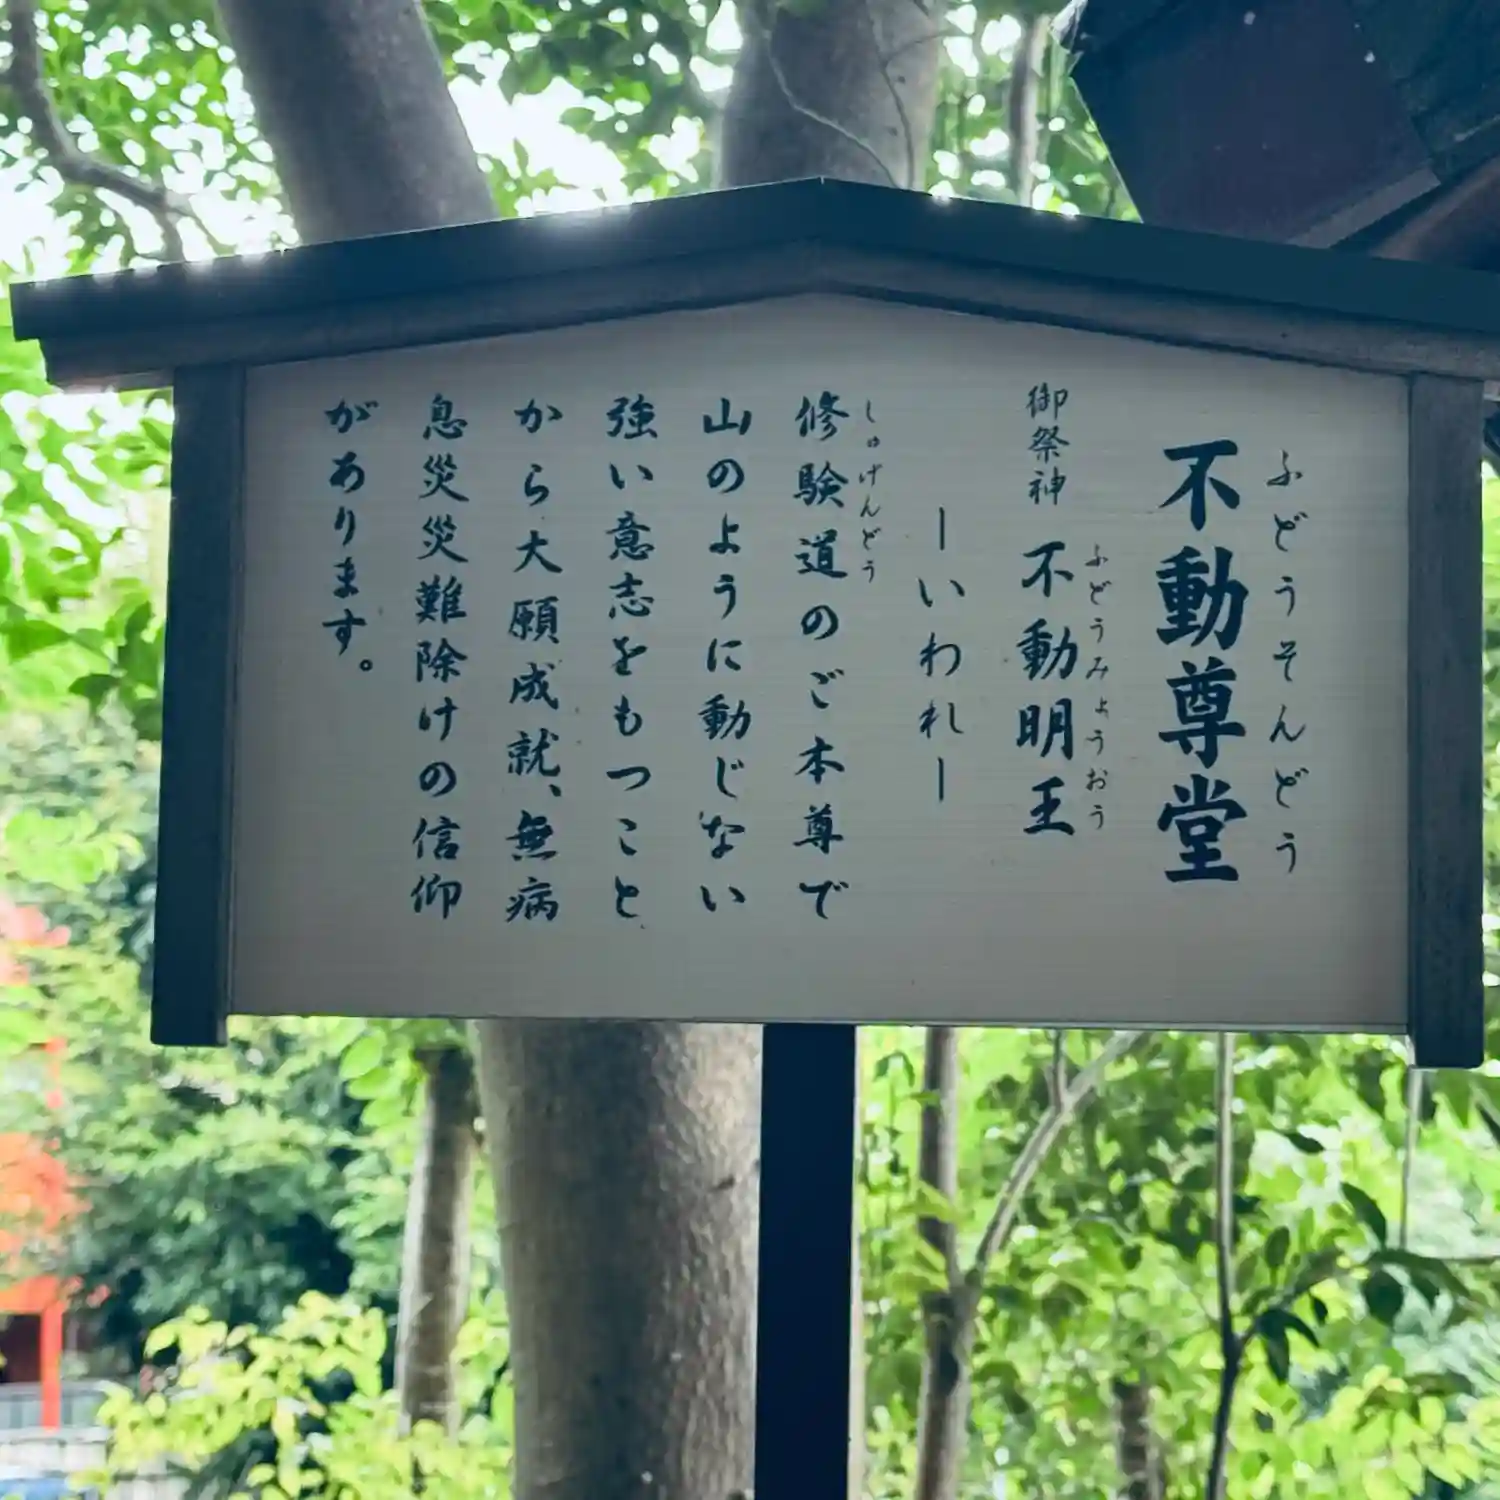 ふどうそんどう
不動尊堂
ふどうみょうおう
御祭神 不動明王
ーいわれー
しゅげんどう
修験道のご本尊で
山のように動じない
強い意志をもつこと
から大願成就、無病
息災災難除けの信仰
があります。